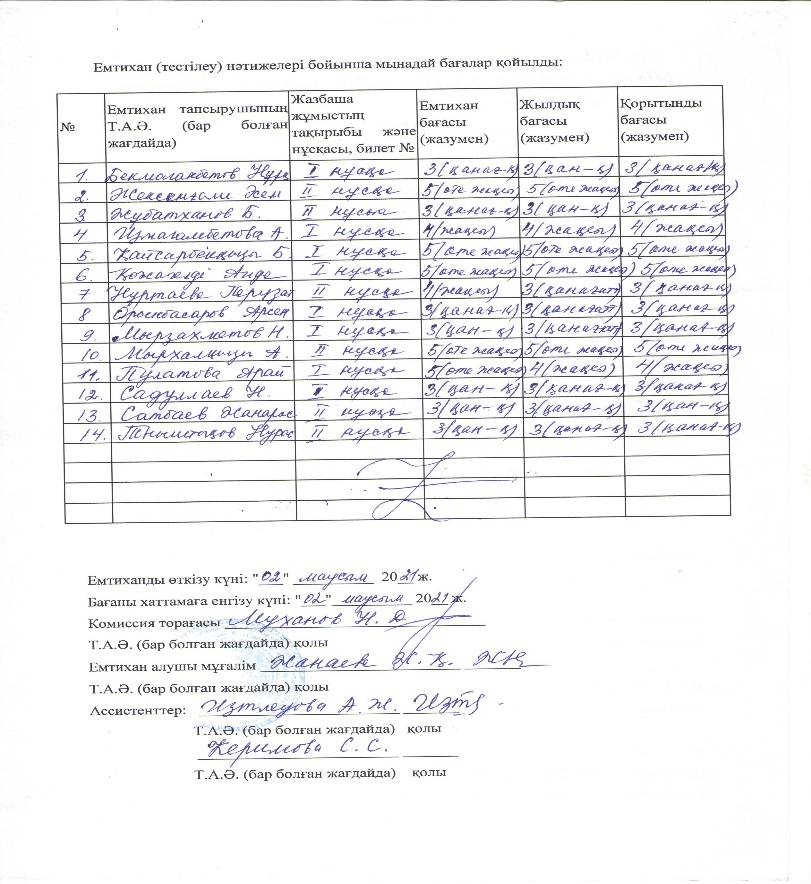 Емтихан (тестілеу) нәтижелері бойынша мынадай бағалар қойылды:
№ Емтихан тапсырушының Т.А.Ә. (бар болған жағдайда) Жазбаша жұмыстың тақырыбы және нұсқасы, билет № Емтихан бағасы (жазумен) Жылдық бағасы (жазумен) Қорытынды бағасы (жазумен)
1. Бекмаганбетов Нұра I нұсқа 3(қанағ-қ) 3(қан-қ) 3(қанағ-қ)
2. II нұсқа 5(өте жақсы) 5(өте жақсы) 5(өте жақсы)
3 Жубатханов Б. II нұсқа 3(қанағ-қ) 3(қан-қ) 3(қанағ-қ)
4 Измагамбетова А. I нұсқа 4(жақсы) 4(жақсы) 4(жақсы)
5. Қайсарбекқызы Б I нұсқа 5(өте жақсы) 5(өте жақсы) 5(өте жақсы)
6. I нұсқа 5(өте жақсы) 5(өте жақсы) 5(өте жақсы)
7 Нуртаева Перузат II нұсқа 4(жақсы) 3(қанағат) 3(қанағ-қ)
8 Орынбасаров Арсен I нұсқа 3(қанағ-қ) 3(қанағат) 3(қанағ-қ)
9. Мырзахметов Н. I нұсқа 3(қан-қ) 3(қанағат) 3(қанағ-қ)
10. А. II нұсқа 5(өте жақсы) 5(өте жақсы) 5(өте жақсы)
11. Пулатова Арай I нұсқа 5(өте жақсы) 4(жақсы) 4(жақсы)
12. Садуллаев Н. II нұсқа 3(қан-қ) 3(қанағ-қ) 3(қанағ-қ)
13. Сатбаев Жанарыс II нұсқа 3(қан-қ) 3(қанағ-қ) 3(қан-қ)
14. Тныштықов Нұрас II нұсқа 3(қан-қ) 3(қанағ-қ) 3(қанағ-қ)
Емтиханды өткізу күні: "02" маусым 2021 ж.
Бағаны хаттамаға енгізу күні: "02" маусым 2021 ж.
Комиссия торағасы Муханов Н. Д
Т.А.Ә. (бар болған жағдайда) қолы
Емтихан алушы мұғалім Жанаев Ж. Қ.
Т.А.Ә. (бар болған жағдайда) қолы
Ассистенттер: Изтлеуова А. Ж.
Т.А.Ә. (бар болған жағдайда) қолы
Керимова С. С.
Т.А.Ә. (бар болған жағдайда) қолы